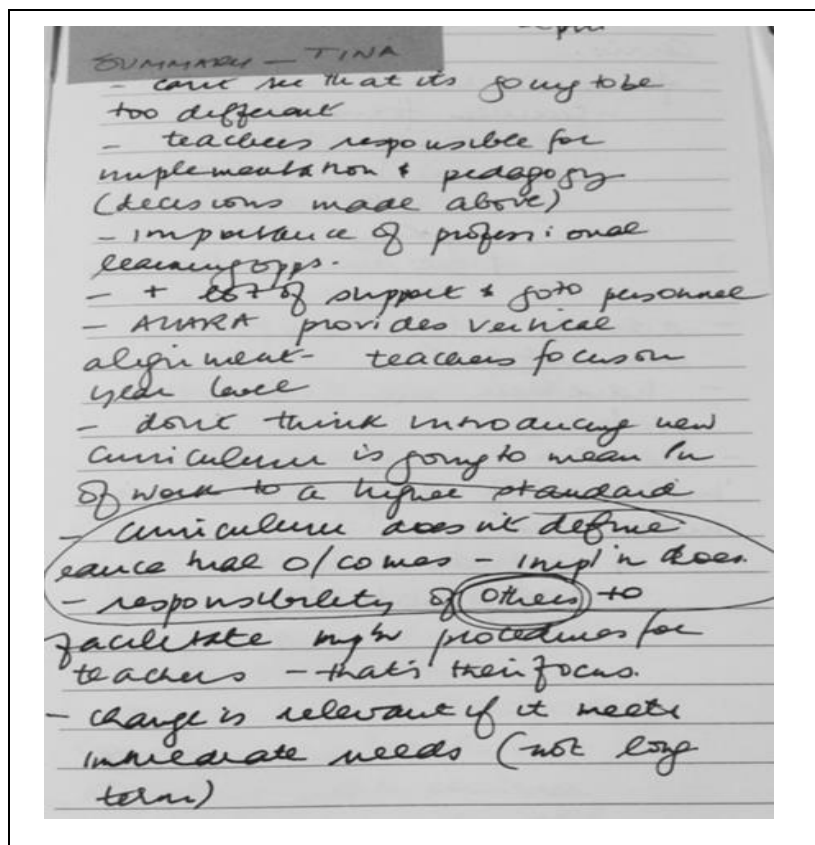 SUMMARY – TINA
- can't see that its going to be
too different
- teachers responsible for
implementation & pedagogy
(decisions made above)
- importance of professional
learning opps.
- + lot of support & goto personnel
- ACARA provides vertical
alignment - teachers focus on
year level
- don't think introducing new
curriculum is going to mean
of work to a higher standard
- curriculum doesn't define
educa'nal o/comes - impl'n does.
- responsibility of others to
facilitate procedures for
teachers - that's their focus.
- change is relevant if it meets
immediate needs (not long
term)